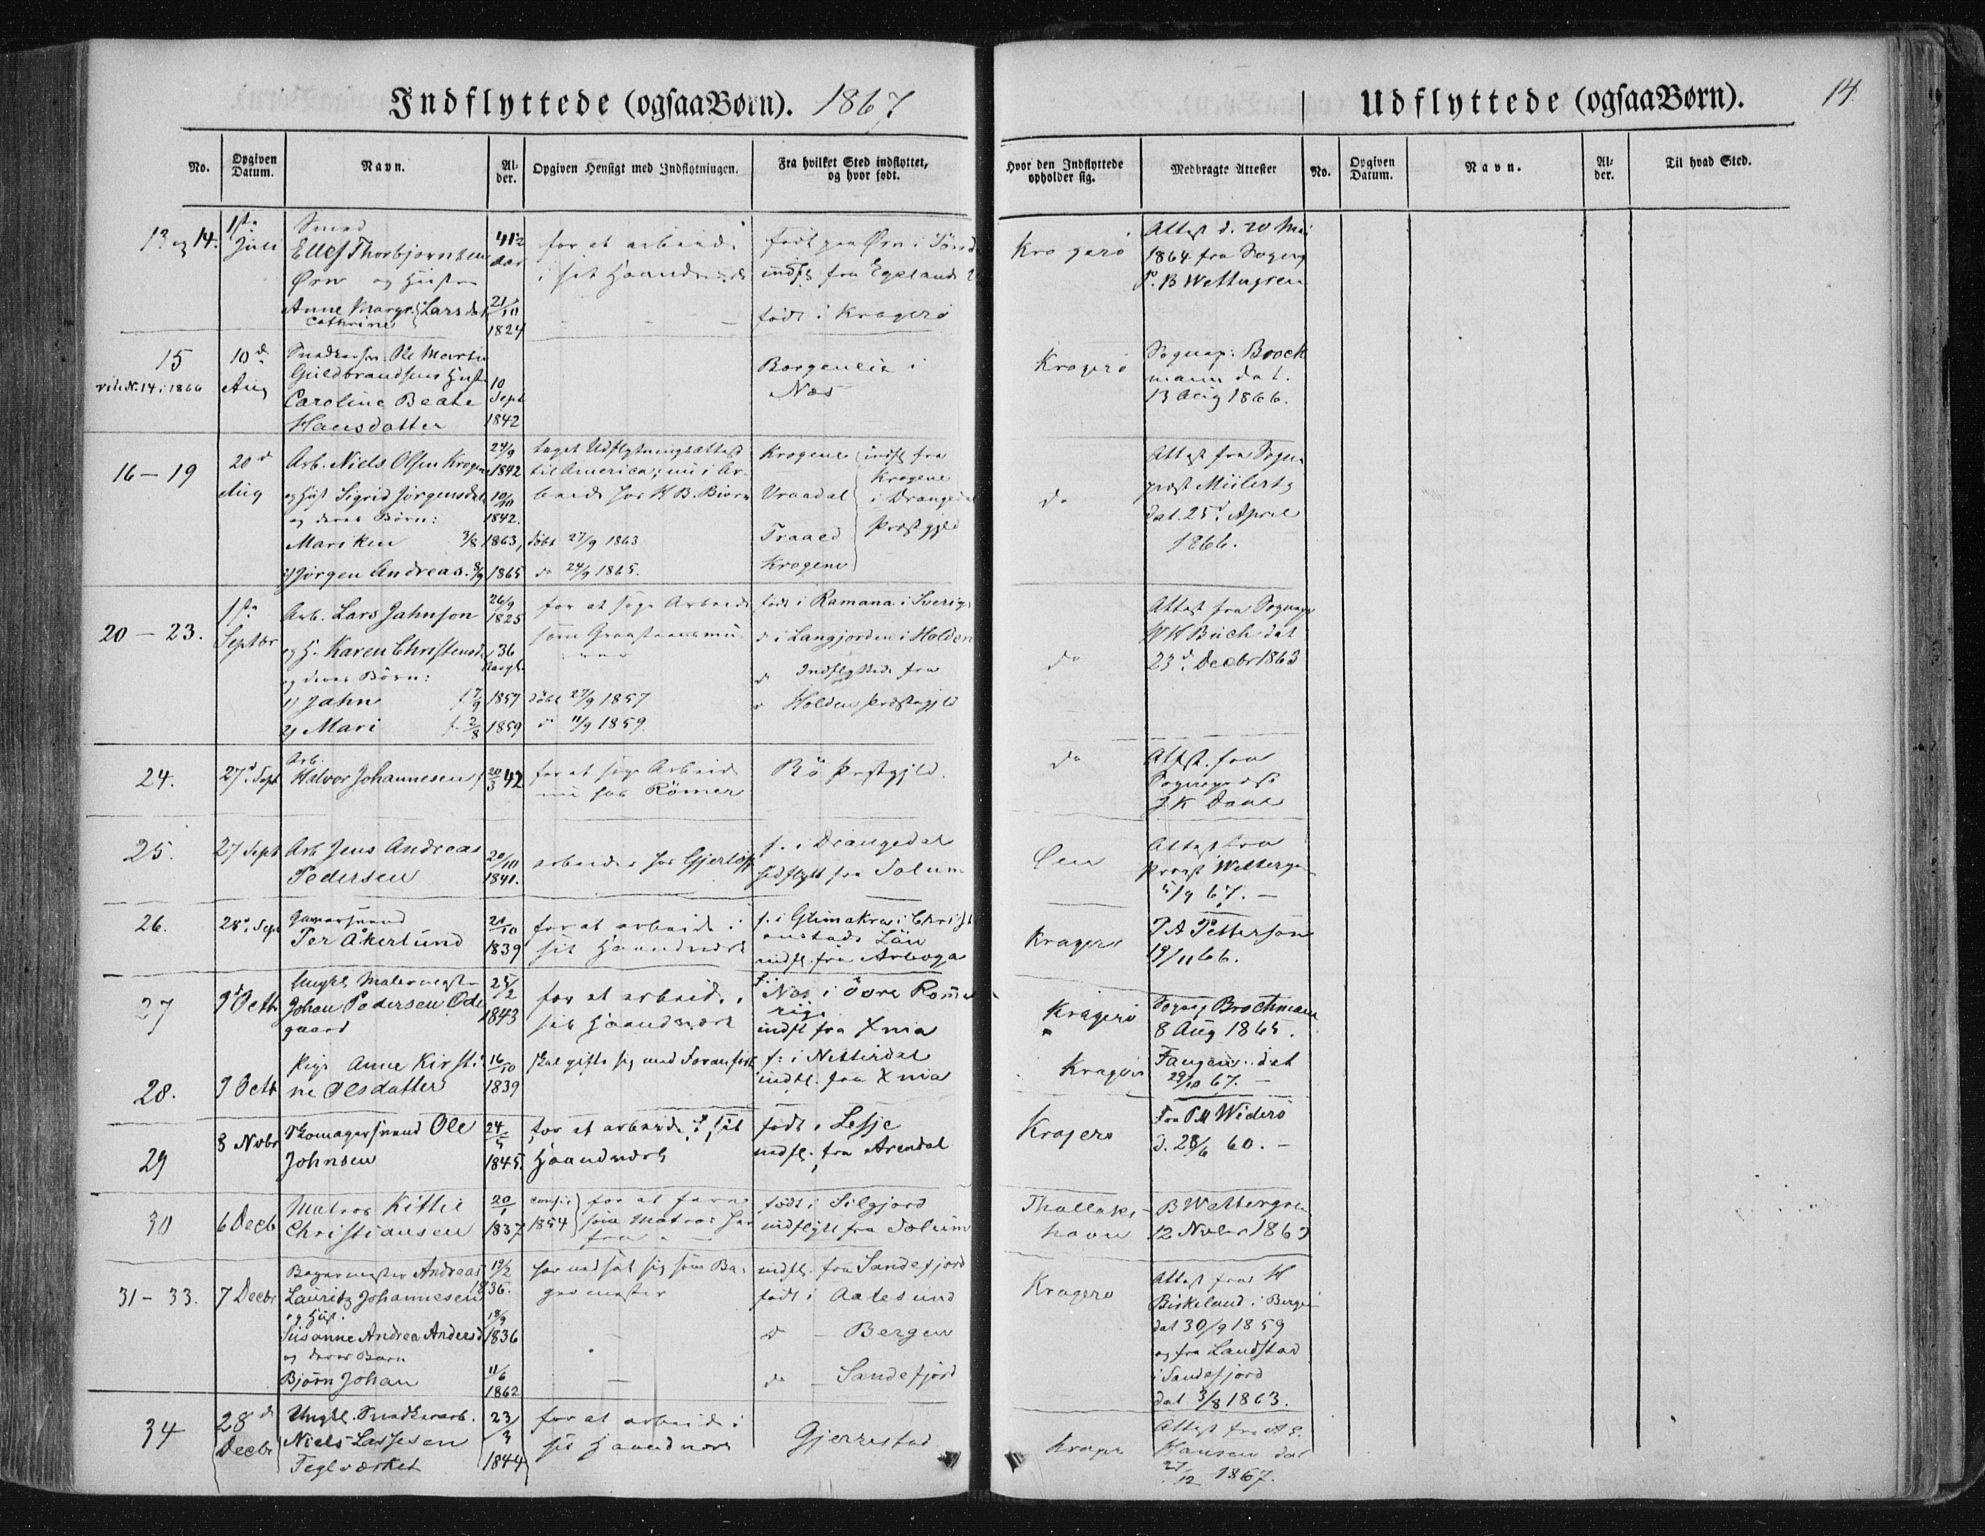 Indflyttede (ogsaa Børn). 1867
Udflyttede (ogsaa Børn).
14.
No.
Opgiven Datum.
Navn.
Al-
der.
Opgiven Hensigt med Indflytningen.
Fra hvilket Sted indflyttet,
og hvor født.
Hvor den Indflyttede
opholder sig.
Medbragte Attester
No.
Opgiven
Datum.
Navn.
Al-
der.
Til hvad Sted.
13 og 14.
1ste
Juli
Smed
Ellef Thorbjørnsen
Ørn og Hustru
Anne Margr. Lars dat
Cathrine
41½
Aar
21/10
1824
for at arbeide
i sit Haandværk
født paa Ørn i
indfl fra Egelands
født i Kragerø
Kragerø
Attest d. 20 Mai
1864 fra Sogne
P. B Wettergren
15
vide N. 14 i 1866
10 d
Aug
Ole Martin
Guldbrandsens Hust
Caroline Beate
Hansdatter
10
Sept
1842
Borgeneia i
Næs
Kragerø
Sognep: Brock
mann dat.
13 Aug 1866.
16 – 19
20 d
Aug
Arb. Niels Olsen Krogene
og Hust Sigrid Jørgensdat
og deres Børn:
Mariken 3/8
Jørgen Andreas. 8/9
24/9
1842
10/10
1842.
1863,
1865
taget Udflytningsattest
til America; nu i Ar-
beide hos H B. Biørn
døbt 27/9 1863
do 24/9 1865.
Krogene
Vraadal
Traaed
Krogene
indfl fra
Krogene
i Drangedal
Præstgjld
do
Attest fra Sogne
præst Müllertz
dat. 25d April
1866.
20 – 23.
1ste
Septbr
Arb. Lars Jahnson
og H. Karen Christensd.
og deres Børn:
1) Jahn f. 7/9
2) Mari f. 2/8
26/9
1825
36
Aar gl.
1857
1859
for at søge Arbeide
som Graasteensmu-
rer
døbt 27/9 1857
do 11/9 1859.
født i Ramana i Sverig
do i Langjorden i Holden
do Indflyttede fra
do Holden Præstegjld
do
Attest fra Sognepr
W H Buch dat
23d. Decbr 1863
24.
27d. Sept
Arb.
Halvor Johannesen f
20/3 42
for at søge Arbeide
nu hos Römer
Bö Præstgjld.
do
Attest. fra
Sognepræst
J K Daae
25.
27 Sept
Arb Jens Andreas
Pedersen
20/10
1841.
arbeider hos Gjerløff
f. i Drangedal
indflytt fra Solum
Øen
Attest fra
Provst Wettergr
5/9 67. –
26.
28d. Sept
Garversvend
Per Åkerlund
1839
for at arbeide i
sit Haandværk
f. i Glimakra i Christ
anstads Län
indfl. fra Arboga
Kragerø
P A Petterson
19/11 66.
27
9d Octb
Ungkl Malermester
Johan Pedersen Øde
gaard
25/2
1843
for at arbeide i
sit Haandværk
f. Næs i övre Rome
rige
indfl fra Xnia
Kragerø
Sognep Brochmann
8 Aug 1865.
28.
9 Octb
Pige Anne Kirsti
ne Olsdatter
16/10
1839
skal gifte sig med Foranførte
f: i Nitterdal
indfl. fra Xnia
Kragerø
Fangen dat
29/10 67. –
29
8 Novbr
Skomagersvend Ole
Johnsen
24/5
1845.
for at arbeide i sit
Haandværk
født i Lesje
indfl. fra Arendal
Kragerø
Fra PM Widerø
d. 28/6 60. –
30
6 Decb
Matros Kittil
Christiansen
20/1
1837
confir
1854
for at fare
som Matros her
fra
født i Silgjord
indflytt fra Solum
Thallaks-
havn
B Wettergren
12 Novbr 1867
31 – 33.
7 Decbr
Bagermester Andreas
Lauritz Johannesen
og Hust.
Susanne Andrea Andersd
og deres Barn
Bjørn Johan
19/2
1835.
18/9
1836
11/6
1862
har nedsat sig som Ba-
germester
indfl. fra Sandefjord
født i Aalesund
do – Bergen
do – Sandefjord
Kragerø
Attest fra H
Birkeland i Bergen
dat 30/9 1859
og fra Landstad
i Sandefjord
dat 3/8 1863.
34
28 d
Decbr
Ungkl. Snedkerarb.
Niels Larsen
Teglværket
23/3
1844
for at arbeide i
sit Haandværk
Gjerrestad
Kragerø
Attest fra A E.
Hansen dat
27/12 1867.